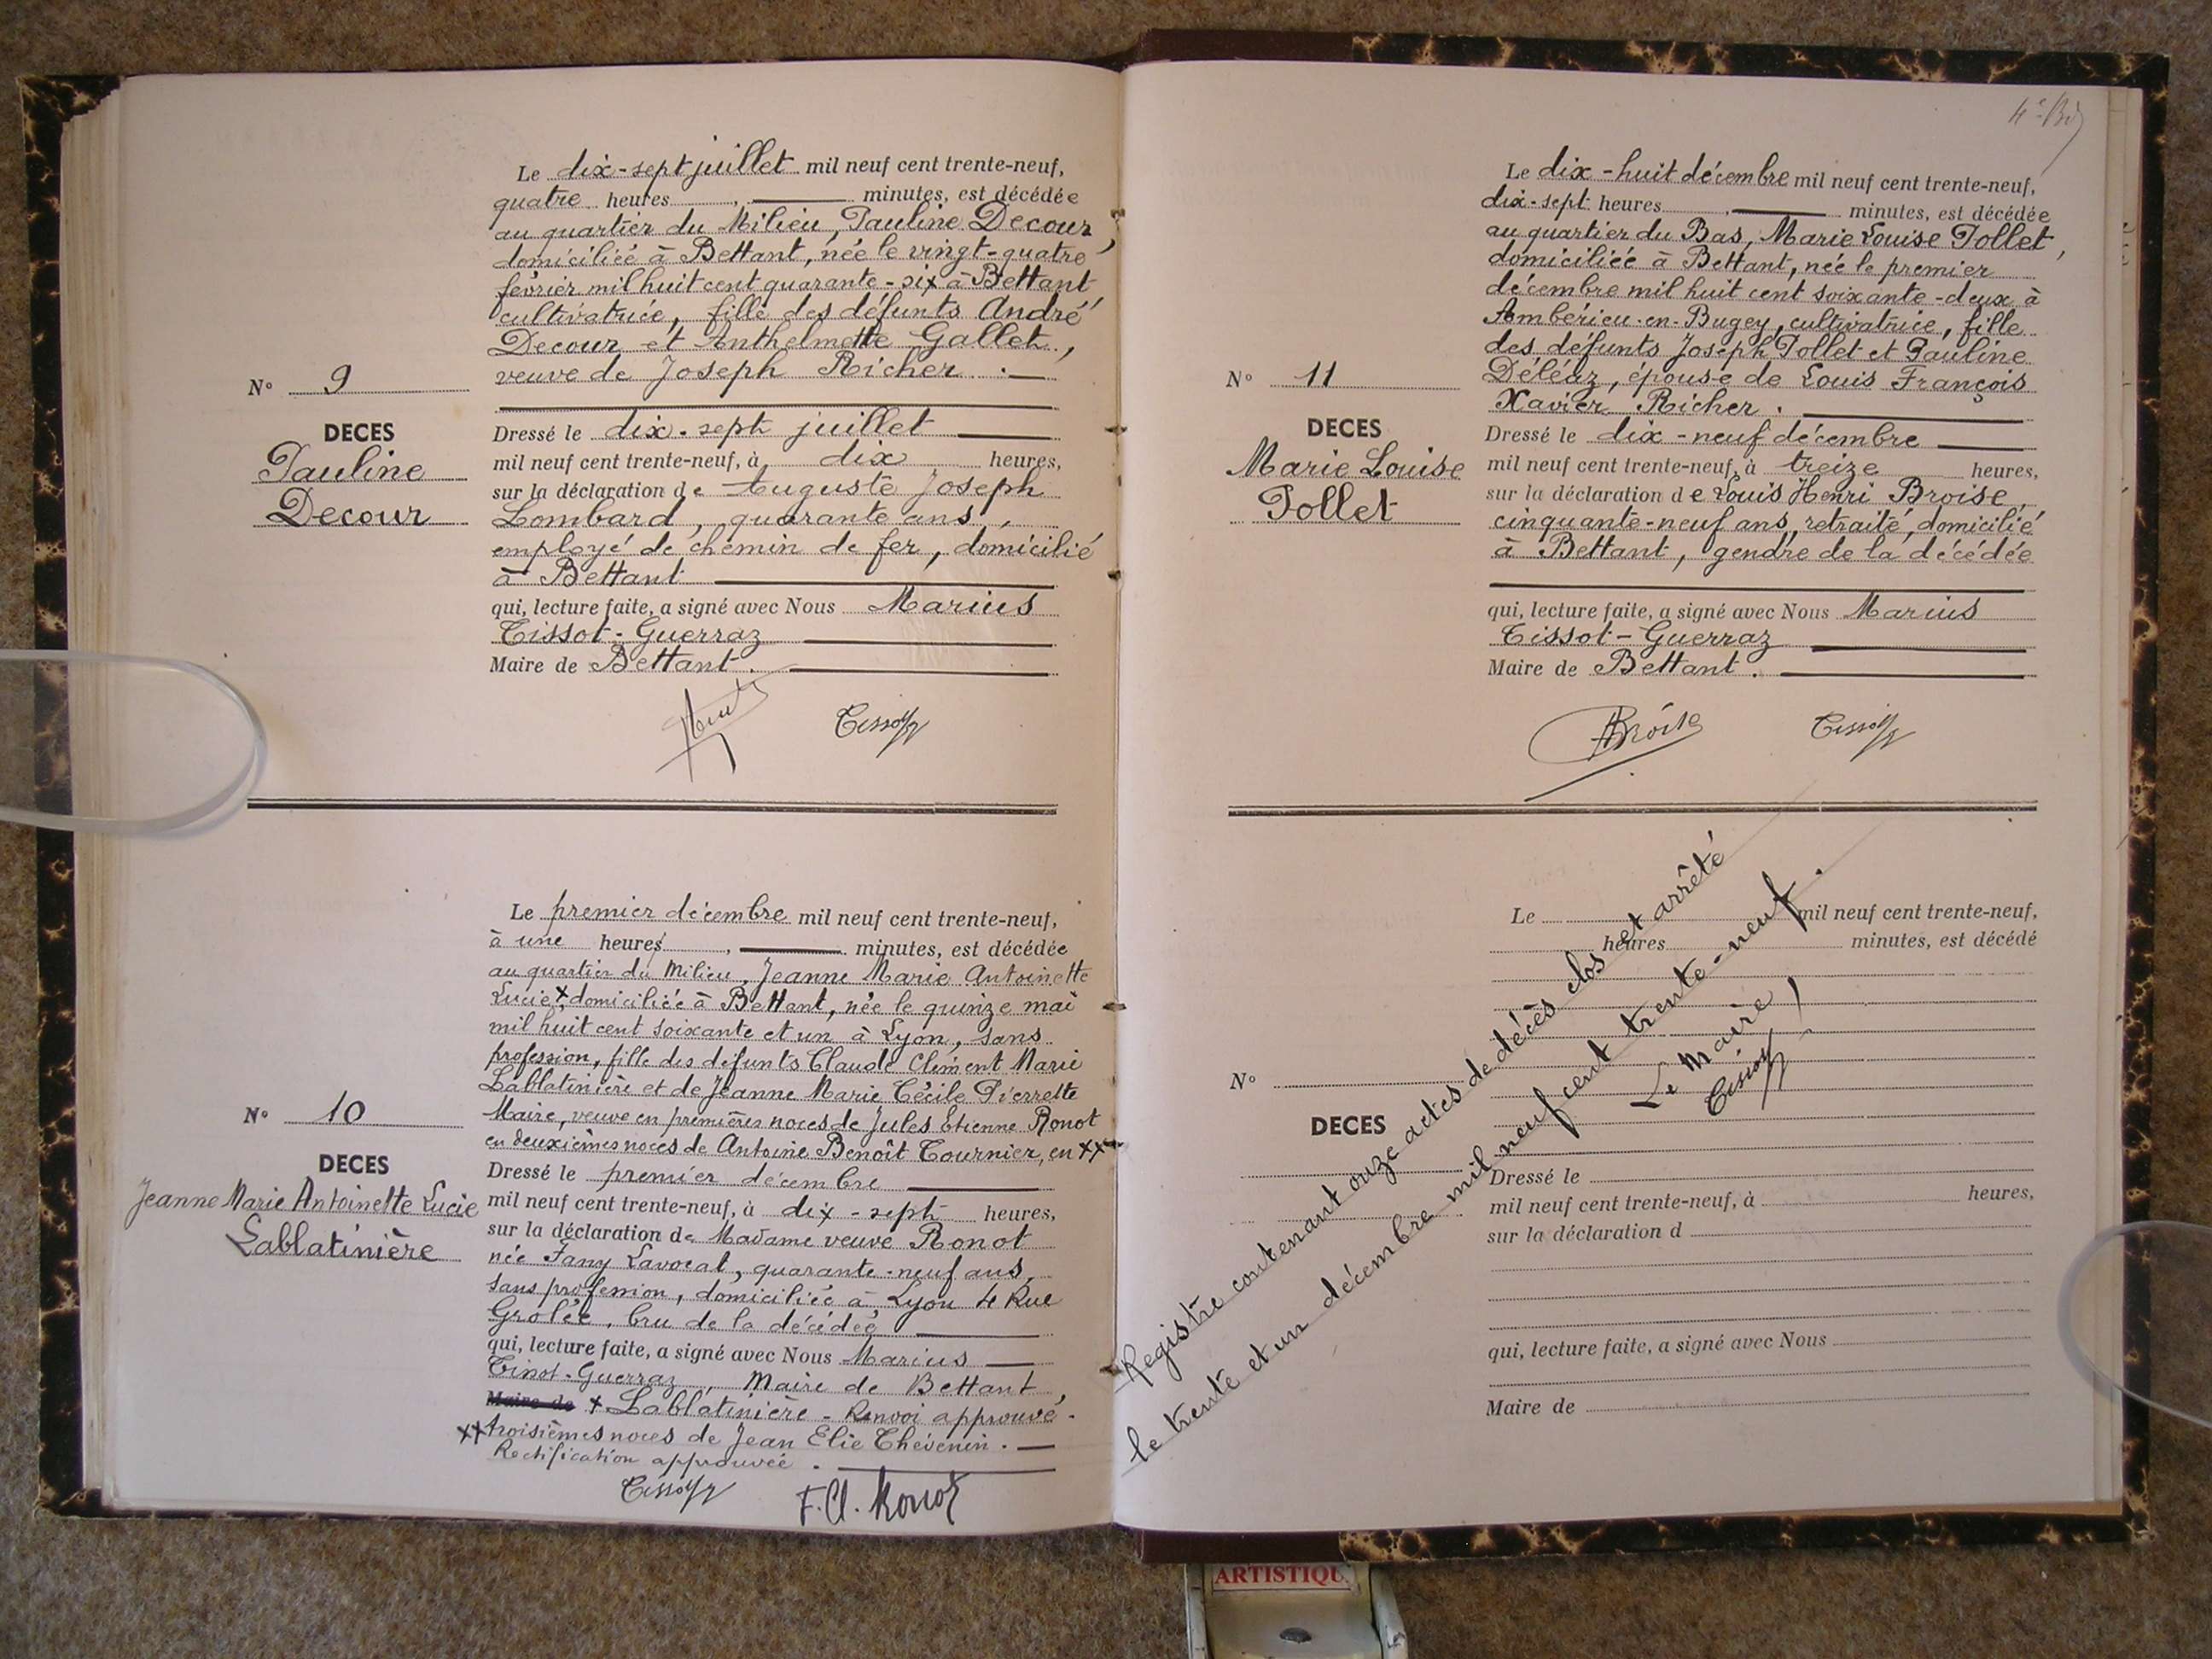 Le dix-sept juillet mil neuf cent trente-neuf,
quatre heures, minutes, est décédée
au quartier du Milieu, Pauline Decour,
domiciliée à Bettant, née le vingt-quatre
février mil huit cent quarante-six à Bettant
cultivatrice, fille des défunts André
Decour et Anthelmette Gallet,
veuve de Joseph Richer.
N° 9
DECES
Pauline
Decour
Dressé le dix-sept juillet
mil neuf cent trente-neuf, à dix heures,
sur la déclaration de Auguste Joseph
Lombard, quarante ans,
employé de chemin de fer, domicilié
à Bettant
qui, lecture faite, a signé avec Nous Marius
Tissot-Guerraz
Maire de Bettant.
Le premier décembre mil neuf cent trente-neuf,
à une heures, minutes, est décédée
au quartier du Milieu, Jeanne Marie Antoinette
Lucie x domiciliée à Bettant, née le quinze mai
mil huit cent soixante et un à Lyon, sans
profession, fille des défunts Claude Clément Marie
Lablatinière et de Jeanne Marie Cécile Pierrette
Maire, veuve en premières noces de Jules Etienne Ronot
en deuxièmes noces de Antoine Benoît Tournier, en xx
N° 10
DECES
Jeanne Marie Antoinette Lucie
Lablatinière
Dressé le premier décembre
mil neuf cent trente-neuf, à dix-sept heures,
sur la déclaration de Madame veuve Ronot
née Fany Lavocat, quarante-neuf ans,
sans profession, domiciliée à Lyon 4 Rue
Grolée, bru de la décédée
qui, lecture faite, a signé avec Nous Marius
Tissot-Guerraz, Maire de Bettant,
Maire de x Lablatinière - Renvoi approuvé.
xx troisièmes noces de Jean Elie Thévenin.
Rectification approuvée.
F. Cl. Ronot
4e Bis
Le dix-huit décembre mil neuf cent trente-neuf,
dix-sept heures, minutes, est décédée
au quartier du Bas, Marie Louise Pollet,
domiciliée à Bettant, née le premier
décembre mil huit cent soixante-deux à
Ambérieu-en-Bugey, cultivatrice, fille
des défunts Joseph Pollet et Pauline
Déléaz, épouse de Louis François
Xavier Richer.
N° 11
DECES
Marie Louise
Pollet
Dressé le dix-neuf décembre
mil neuf cent trente-neuf, à treize heures,
sur la déclaration de Louis Henri Broise,
cinquante-neuf ans, retraité, domicilié
à Bettant, gendre de la décédée
qui, lecture faite, a signé avec Nous Marius
Tissot-Guerraz
Maire de Bettant.
Broise
Le mil neuf cent trente-neuf,
heures minutes, est décédé
N°
DECES
Dressé le
mil neuf cent trente-neuf, à heures,
sur la déclaration d
qui, lecture faite, a signé avec Nous
Maire de
Registre contenant onze actes de décès clos et arrêté
le trente et un décembre mil neuf cent trente-neuf.
Le Maire,
ARTISTIQU